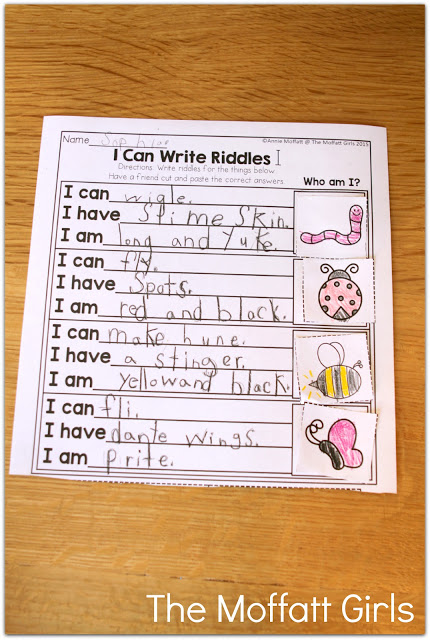 Name Sophia
©Annie Moffatt @ The Moffatt Girls 2015
I Can Write Riddles I
Directions: Write riddles for the things below.
Have a friend cut and paste the correct answers.
Who am I?
I can wigle.
I have slime skin.
I am long and yuke.
I can fly.
I have Spots.
I am red and black.
I can make hune.
I have a stinger.
I am yellow and black.
I can fli.
I have dante wings.
I am prite.
The Moffatt Girls